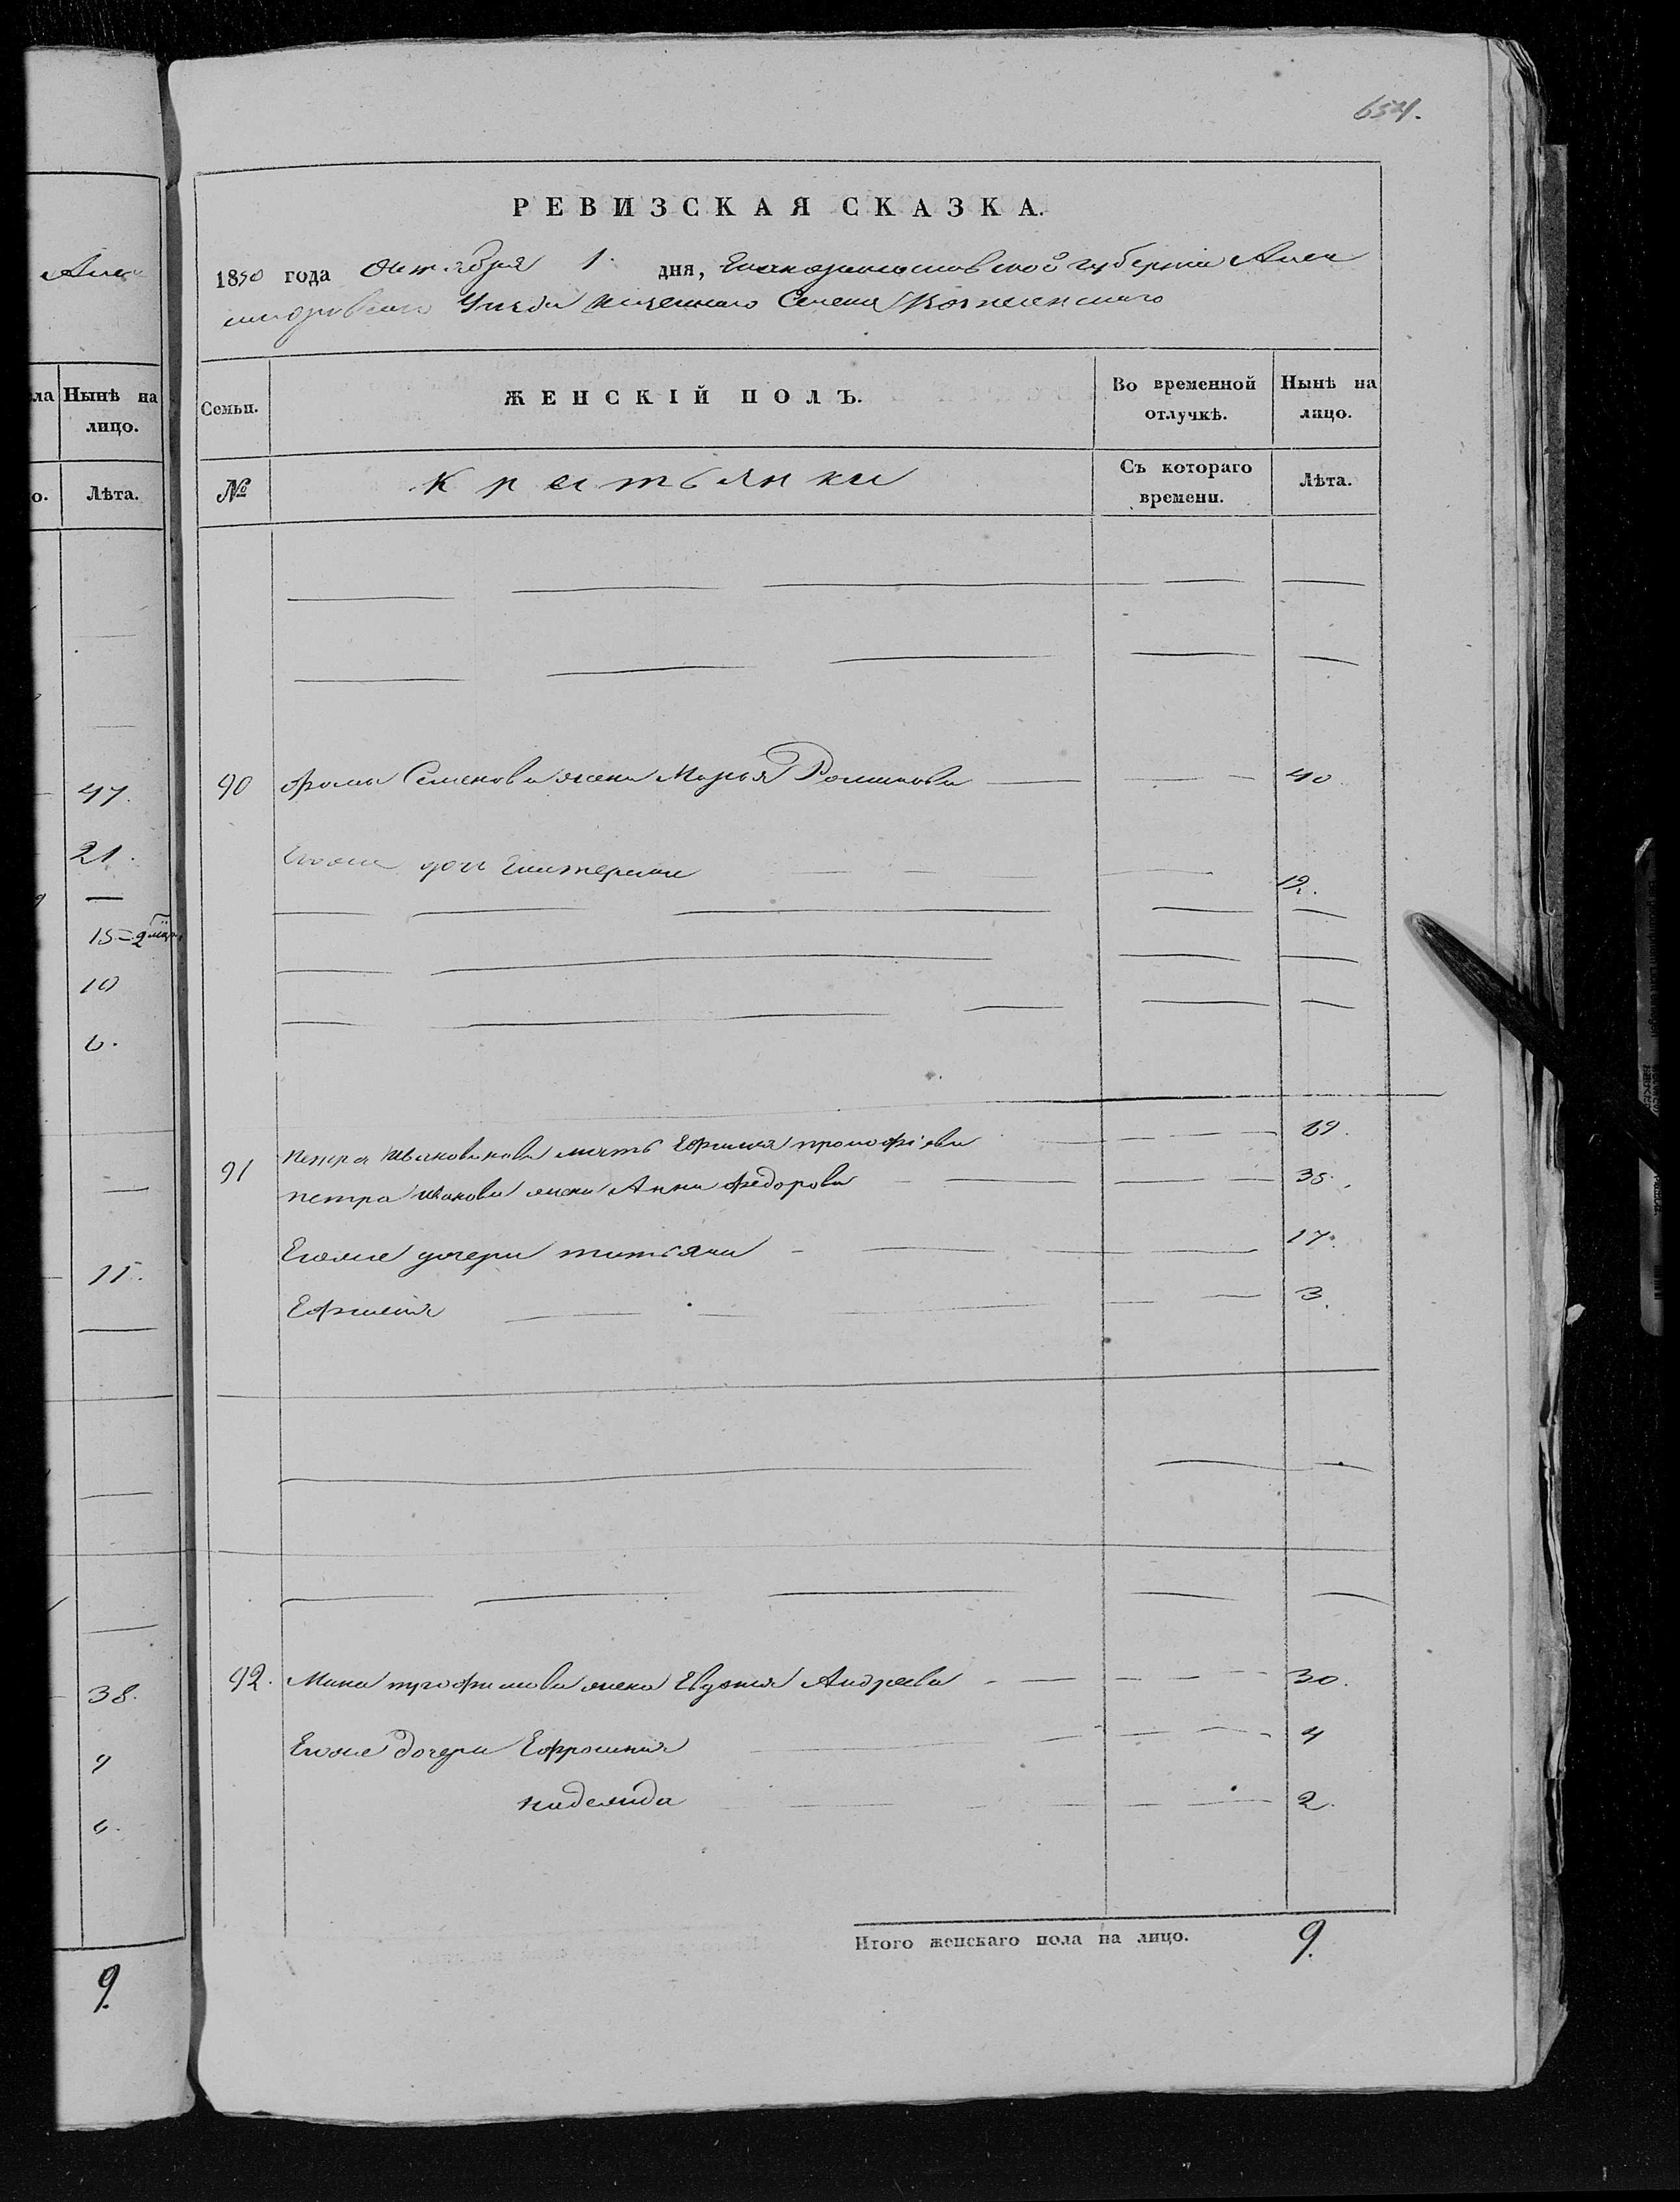 654.
РЕВИЗСКАЯ СКАЗКА.
1850 года Октября 1. дня, Екатеринославской губернии Алек
сандровского Уезда казенного Селения Вознесенского
Алек
ла Нынѣ на лицо.
о. Лѣта.
47.
21.
15-2
10
6.
11.
38.
9
6.
9.
Семьи. ЖЕНСКІЙ ПОЛЪ. Во временной отлучкѣ. Нынѣ на лицо.
№ Крестьянки Съ котораго времени. Лѣта.
90 Фомы Семенова жена Марья Романова 40
Егоже дочь Екатерина 12.
91 Петра Иванова мать Ефимия Прокофіева 69.
Петра Иванова жена Анна Федорова 38.
Егоже дочери Татьяна 17.
Ефимия 3.
92. Мины Трофимова жена Евдокия Андреева 30.
Егоже дочери Ефросиния 4
Надежда 2.
Итого женскаго пола на лицо. 9.